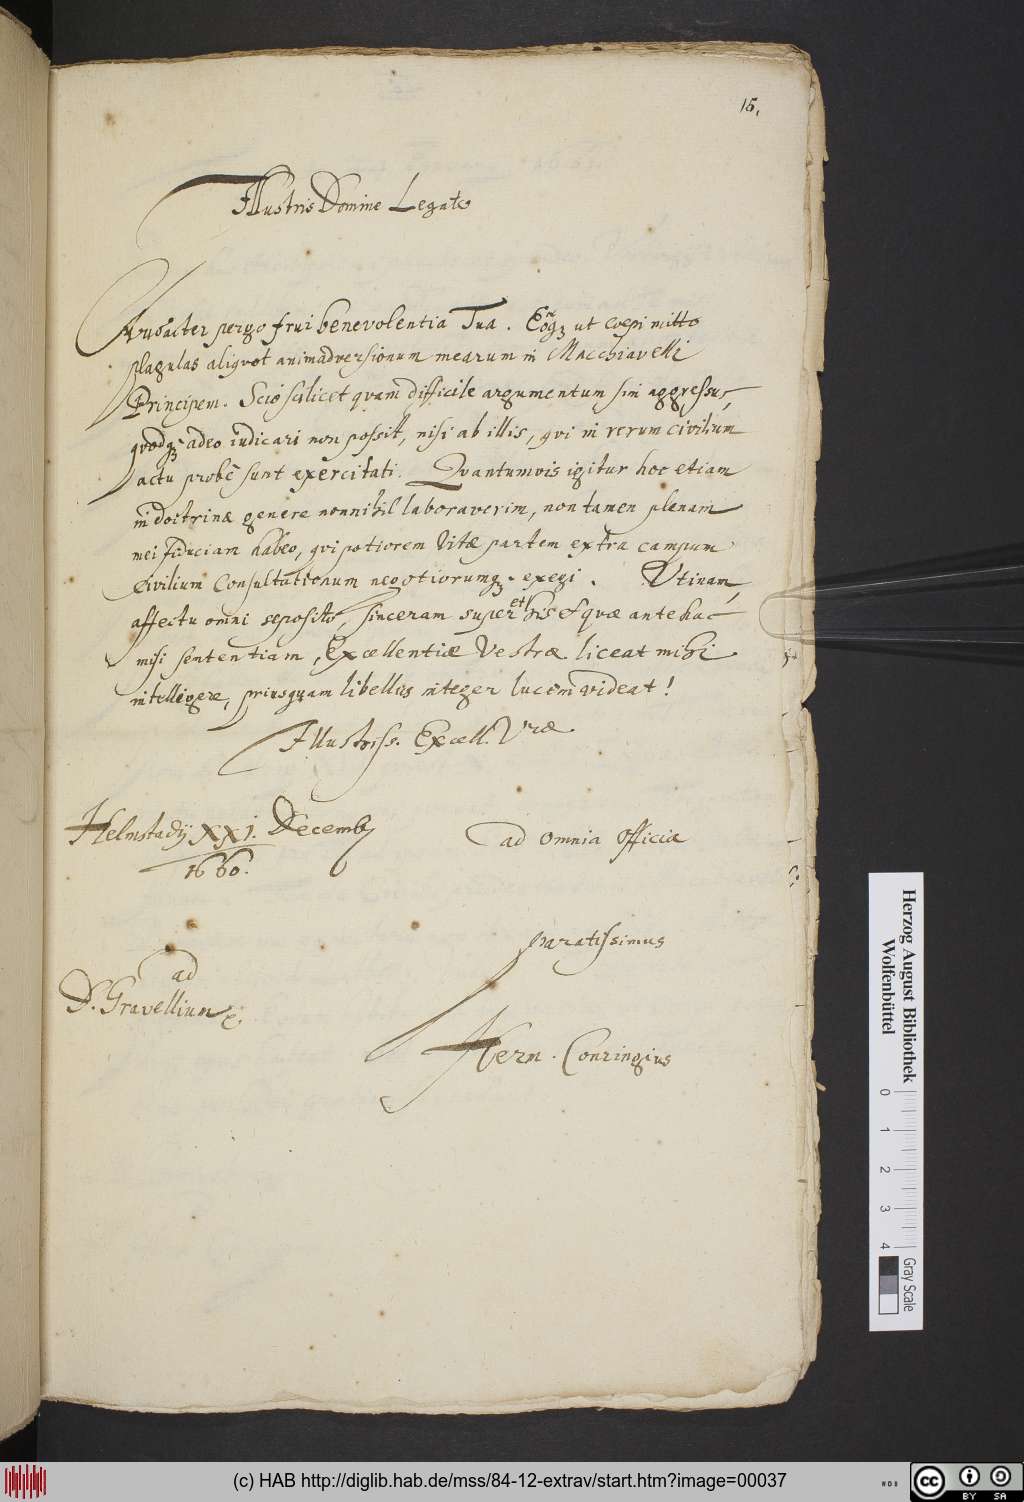 15.
Illustris Domine Legate
Audacter pergo frui benevolentia Tua. Eoq3 ut coepi mitto
plagulas aliqvot animadversionum mearum in Macchiavelli
Principem. Scio scilicet qvam difficile argumentum sim aggressus,
qvodq3 adeo iudicari non possit, nisi ab illis, qvi in rerum civilium
actu probè sunt exercitati. Qvantumvis igitur hoc etiam
in doctrinæ genere nonnihil laboraverim, non tamen plenam
mei fiduciam habeo, qvi potiorem vitæ partem extra campum
civilium consultationum negotiorumq3 exegi. Utinam,
affectu omni seposito, sinceram super et his & quæ antehac
misi sententiam, Excellentiæ Vestræ liceat mihi
intelligere, priusquam libellus integer lucem videat!
Illustriss. Excell. Vræ
Helmstadij XXI. Decemb
1660.
ad omnia officia
paratissimus
ad
D. Gravellium
Herm. Conringius
Herzog August Bibliothek
Wolfenbüttel
0 1 2 3 4
Gray Scale
(c) HAB http://diglib.hab.de/mss/84-12-extrav/start.htm?image=00037
cc BY SA